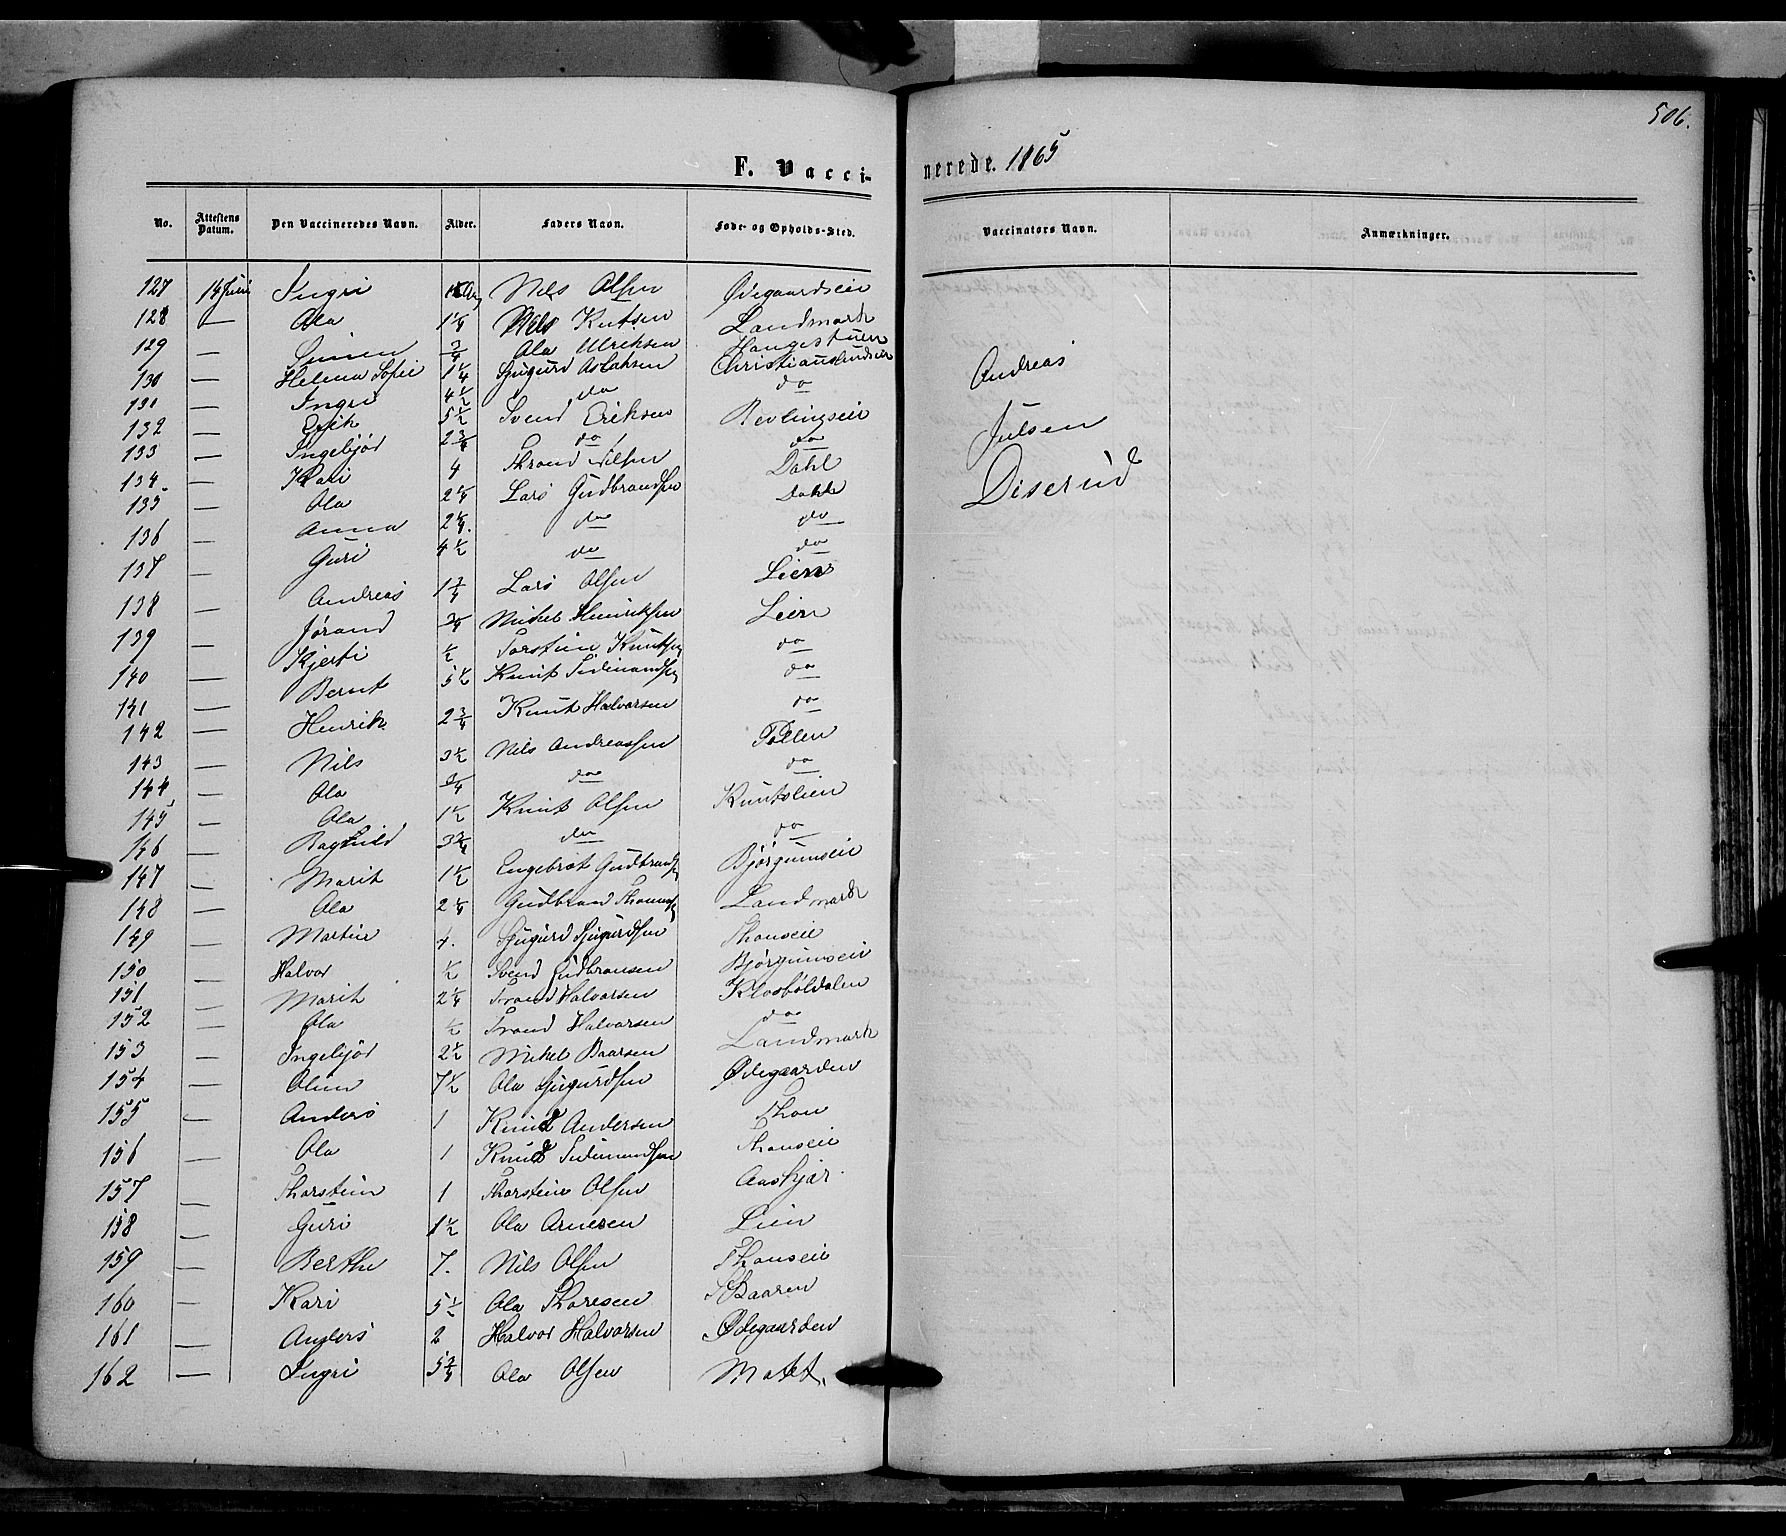 506.
F. Vaccinerede. 1865
No. Attestens Datum. Den Vaccineredes Navn. Alder. Faders Navn. Føde- og Opholds-Sted. Vaccinatørs Navn. Anmærkninger.
127 14 Juni Ingri Nils Olsen Ødegaardseie
128 — Ola 1 1/4 Nils Knutsen Landmark
129 — Simen 3/4 Ola Ulriksen Haugestuen
130 — Helena Sofie 1 1/4 Sjugurd Aslaksen Christianslundseie
131 — Ingri 4 1/2 do do
132 — Erik 5 1/2 Svend Eriksen Revlingseie
133 — Ingebjør 2 3/4 do do
134 — Kari 4 Thrond Nilsen Dahl
135 — Ola 2 1/4 Lars Gudbrandsen Dahl
136 — Anna 2 1/4. do do
137 — Guri 4 1/2 do do
138 — Andreas 1 3/4 Lars Olsen Lien
139 — Jørand 3/4 Mikkel Henriksen Lien
140 — Kjersti 1/2 Torstein Knutsen do
141 — Bernt 5 1/2 Knut Sidemandsen do
142 — Henrik 2 3/4 Knut Halvorsen do
143 — Nils 3 1/2 Nils Andreassen Tollen
144 — Ola 3/4 do do
145 — Ola 1 1/2 Knut Olsen Knutslien
146 — Ragnild 3 3/4 do do
147 — Marit 1 1/2 Engebret Gudbrandsen Bjørgumseie
148 — Ola 2 1/4 Gudbrand Landmark
149 — Martin 4. Sjugurd Sjugurdsen Thonseie
150 — Halvor 1/2 Svend Gudbransen Bjørgumseie
151 — Marit 2 1/4 Trond Halvorsen Klosbøldalen
152 — Ola 1/2 Trond Halvorsen do
153 — Ingebjør 2 1/2 Mikel Baarsen Landmark
154 — Olem 7 1/2 Ola Sjugurdsen Ødegaarden
155 — Anders 1 Knud Andersen Thon
156 — Ola 1 Knud Sidemandsen Thonseie
157 — Thorstein 1 Thorstein Olsen Aaskjær
158 — Guri 1 1/2 Ola Arnesen Lien
159 — Berthe 7. Nils Olsen Thonseie
160 — Kari 5 1/2 Ola Thoresen Baaren
161 — Anders 2 Halvor Halvorsen Ødegaarden
162 — Ingri 5 3/4 Ola Olsen
Andreas
Julsen
Diserud